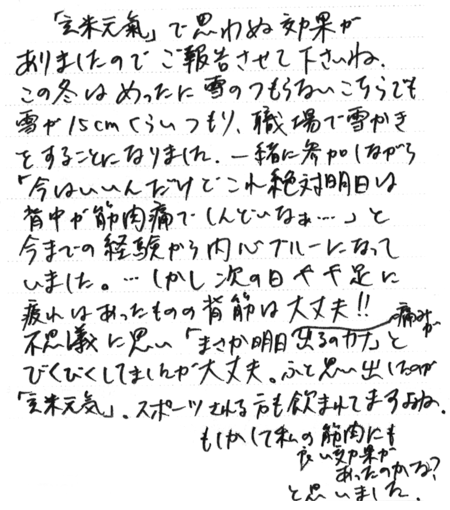 「玄米元氣」で思わぬ効果が
ありましたのでご報告させて下さいね.
この冬はめったに雪のつもらないこちらでも
雪が15cmくらいつもり、職場で雪かき
をすることになりました.一緒に参加しながら
「今はいいんだけどこれ絶対明日は
背中が筋肉痛でしんどいなぁ….」と
今までの経験から内心ブルーになって
いました。…しかし次の日やや足に
疲れはあったものの背筋は大丈夫!!
不思議に思い「まさか明日痛みが出るのカナ」と
びくびくしてましたが大丈夫。ふと思い出したのが
「玄米元気」.スポーツされる方も飲まれてますよね.
もしかして私の筋肉にも
良い効果が
あったのかな?
と思いました.